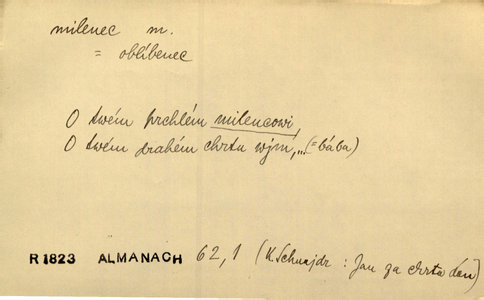 milenec m.
= oblíbenec
O twém prchlém milencowi,
O twém drahém chrtu wjm,... (= bába)
R1823 ALMANACH 62,1 (K. Schnajdr : Jan za chrta dán)